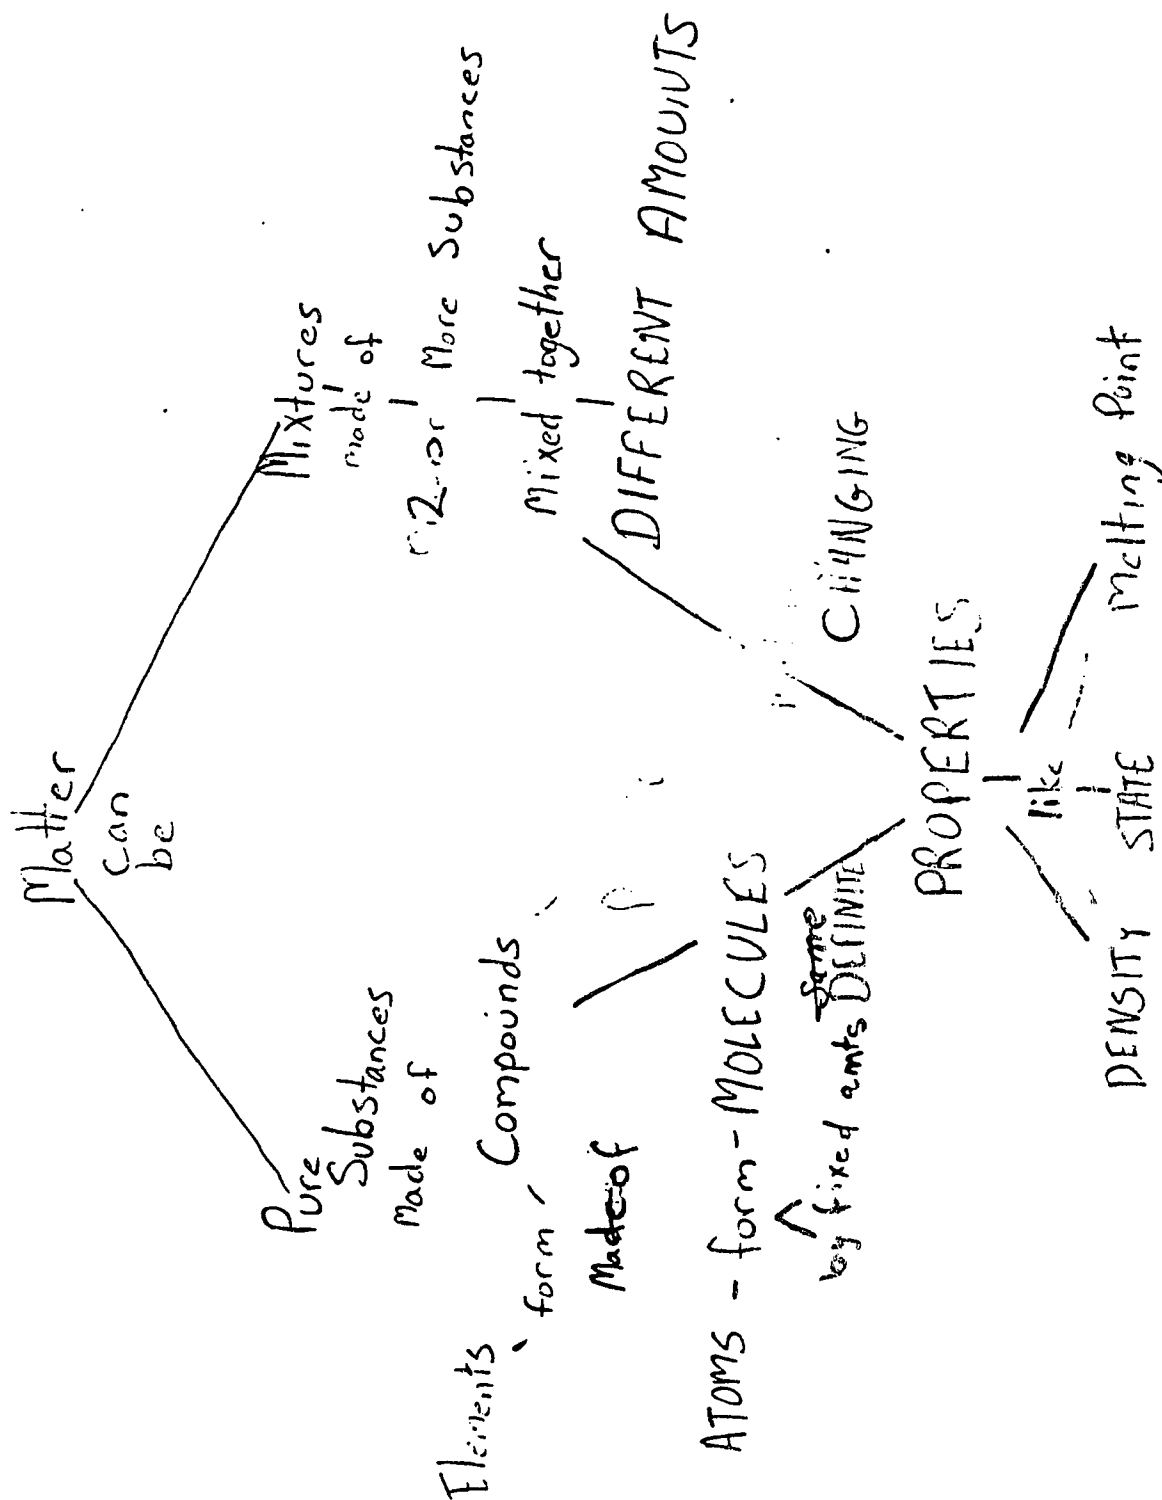 Matter
can
be
Pure
Substances
Made of
Elements
form
Compounds
Made of
ATOMS - form - MOLECULES
by fixed amts
Same
DEFINITE
Mixtures
made of
2 or More Substances
Mixed together
DIFFERENT AMOUNTS
CHANGING
PROPERTIES
like
DENSITY
STATE
Melting Point